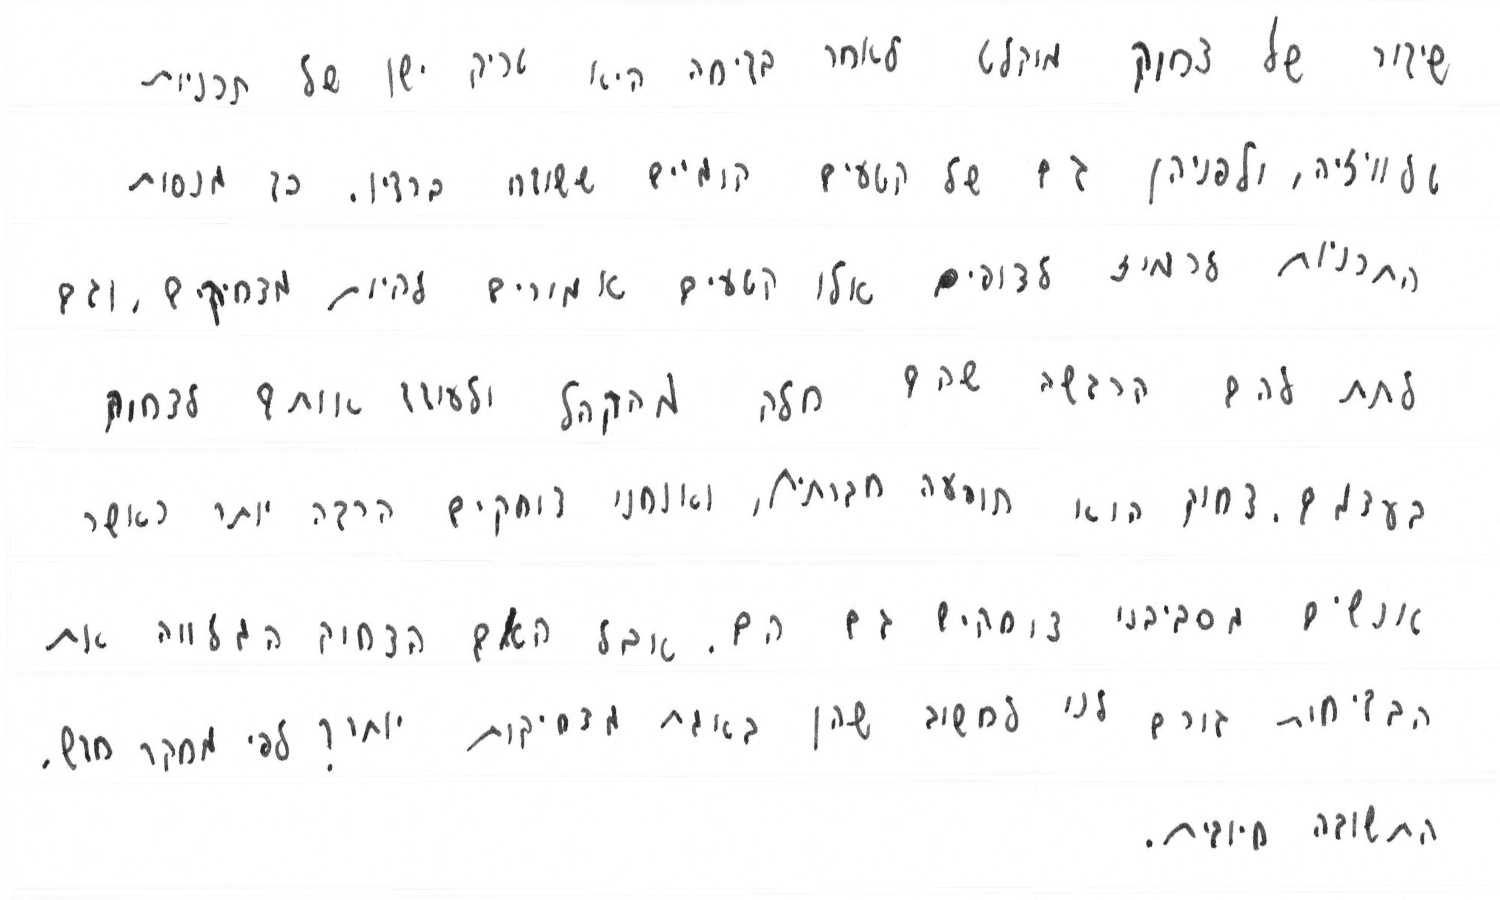 שידור של צחוק מוקלט לאחר בדיחה היא טריק ישן של תכניות
טלוויזיה, ולפניהן גם של קטעים קומיים ששודרו ברדיו. כך מנסות
התכניות לרמוז לצופים אלו קטעים אמורים להיות מצחיקים, וגם
לתת להם הרגשה שהם חלק מהקהל ולעודד אותם לצחוק
בעצמם. צחוק הוא תופעה חברתית, ואנחנו צוחקים הרבה יותר כאשר
אנשים מסביבנו צוחקים גם הם. אבל האם הצחוק המלווה את
הבדיחות גורם לנו לחשוב שהן באמת מצחיקות יותר? לפי מחקר חדש.
התשובה חיובית.